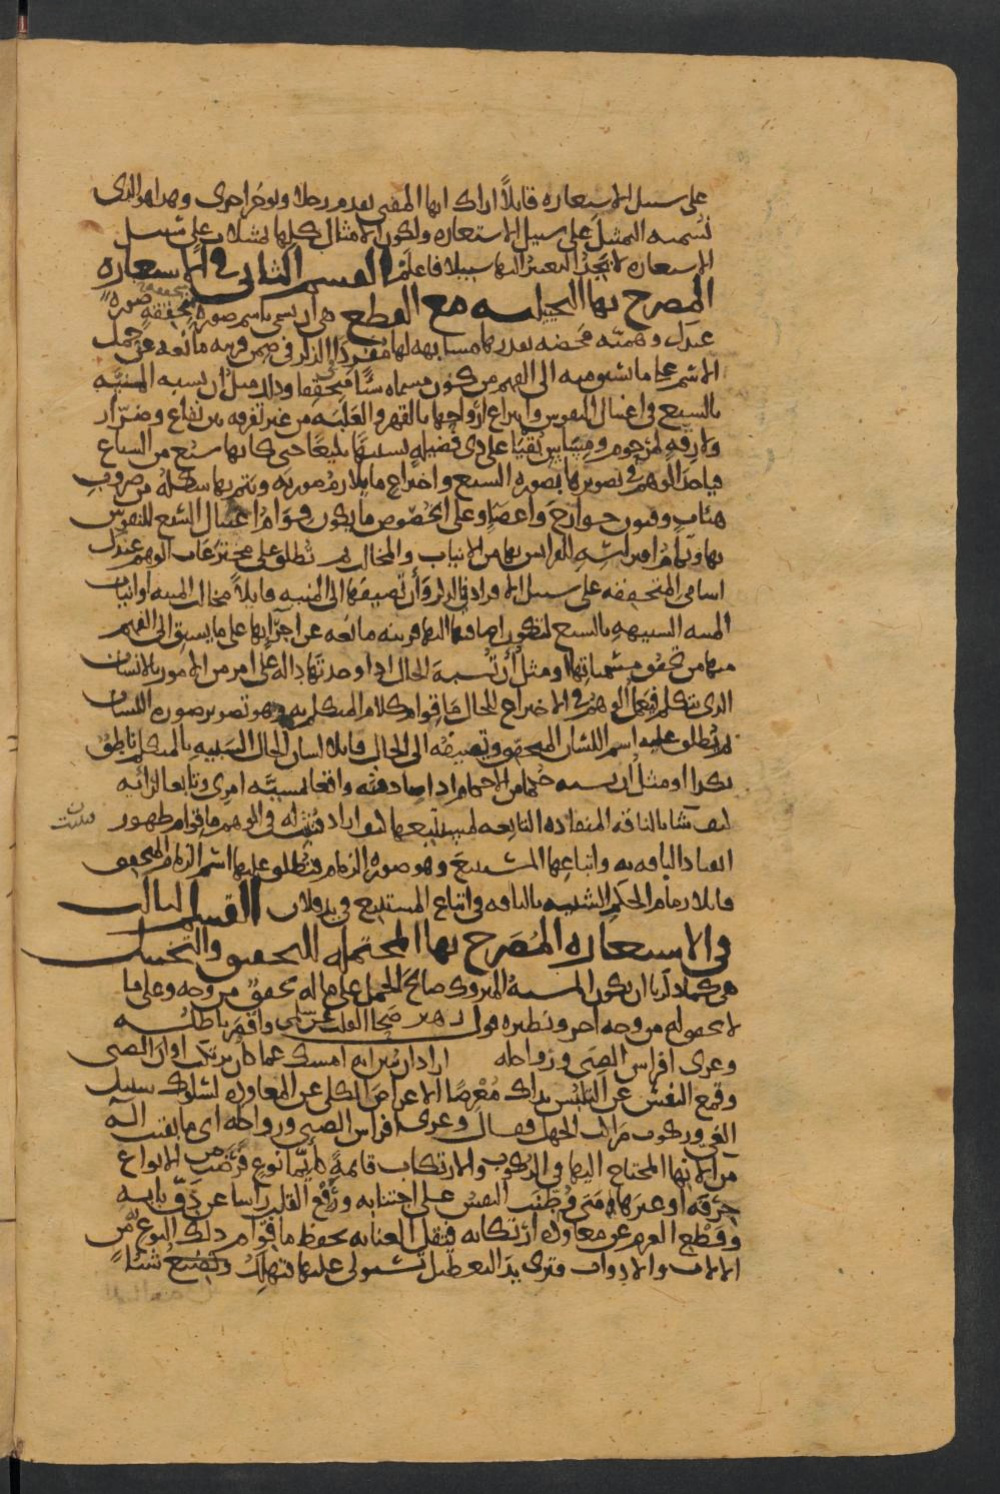 على سبيل الاستعارة قايلاً اراك ايها المفتى تقدم رجلا وتوخر اخرى وهذا هو الذى
نسميه التمثيل على سبيل الاستعاره ولكون الامثال كلها تمثيلات على سبيل
الاستعاره لا يجد التغيير اليها سبيلا فاعلم القسم الثانى فى الاستعاره
المصرح بها التخييليه مع القطع هى ان يسمى باسم صورة متحققة صورة
عندك وهميه محضه تقدرها مشابهه لها مفردا فى الذكر فى ضمن قرينه مانعه عن حمل
الاسم على ما يسبق منه الى الفهم من كون مسماه شيا متحققا وذلك مثل ان تشبه المنيه
بالسبع فى اغتيال النفوس وانتزاع ارواحها بالقهر والغلبه من غير تفرقه بين نفاع وضرار
ولا رقه لمرحوم ومساس بقيا على ذى فضيله تشبيها بليغا حتى كانها سبع من السباع
فياخذ الوهم فى تصويرها بصورة السبع واختراع ما يلازم صورته ويتم بها شكله من ضروب
هيئات وفنون جوارح واعضاء وعلى الخصوص ما يكون قوام اغتيال السبع للنفوس
بها وتمام افتراسه للفرايس بها من الانياب والمخالب ثم تطلق على مخترعات الوهم عندك
اسامى المتحققه على سبيل الافراد فى الذكر وان تضيفها الى المنيه قايلاً مخالب المنيه او انياب
المنيه الشبيهه بالسبع لتكون اضافتها اليها قرينه مانعه عن اجرائها على ما يسبق الى الفهم
منها من تحقق مسمياتها او مثل ان تشبه الحال اذا وجدتها داله على امر من الامور بالانسان
الذى يتكلم فيعمل الوهم فى الاختراع للحال ما قوام كلام المتكلم به وهو تصوير صورة اللسان
ثم تطلق عليه اسم اللسان المتحقق وتضيفه الى الحال قايلا لسان الحال الشبيه بالمتكلم ناطق
بكذا او مثل ان تشبه حكما من الاحكام اذا صادفته واقعا لمشيه امرى وتابعا لرائه
كيف شا بالناقه المنقاده التابعه لمستتبعها كيف اراد فتثبت له فى الوهم ما قوام ظهور
انقياد الناقه به واتباعها المستتبع وهو صوره الزمام فتطلق عليها اسم الزمام المتحقق
قايلا زمام الحكم الشبيه بالناقه فى اتباع المستتبع فى يد فلان القسم الثالث
فى الاستعاره المصرح بها المحتمله التحقيق والتخييل
هى كما ذكرنا ان يكون المشبه المتروك صالح الحمل على ما له تحقق من وجه وعلى ما
لا تحقق له من وجه اخر ونظيره قول زهير صحا القلب عن سلمى واقصر باطله
وعرى افراس الصبى ورواحله اراد ان يبين انه امسك عما كان يرتكب اوان الصبى
وقمع النفس عن التلبس بذلك معرضا الاعراض الكلى عن المعاوده لسلوك سبيل
الغى وركوب مراكب الجهل فقال وعرى افراس الصبى ورواحله اى ما بقيت اله
من آلاتها المحتاج اليها فى الركوب والارتكاب قايمة كايما نوع فرضت من الانواع
حرفه او غيرها متى وطنت النفس على اجتنابه ورفع القلب راسا عن دق بابه
وقطع العزم عن معاودة ارتكابه فتقل العنايه بحفظ ما قوام ذلك النوع به من
الالات والادوات فترى يد التعطيل تستولى عليها فتهلك وتضيع شيئا